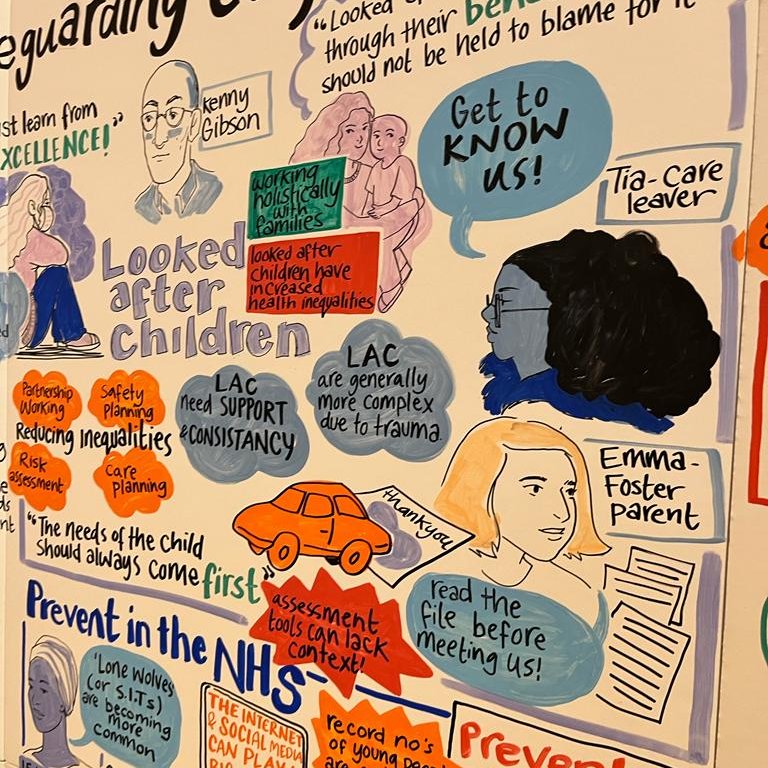 eguarding
"Looked
through their
should not be held to blame for it
st learn from
XCELLENCE!"
Kenny
Gibson
Get to
KNOW
US!
Tia-care
leaver
working
holistically
with
families
looked after
children have
increased
health inequalities
Looked
after
children
LAC
need SUPPORT
& CONSISTANCY
LAC
are generally
more complex
due to trauma.
Partnership
Working
Safety
planning
Reducing Inequalities
Risk
assessment
Care
planning
Emma-
Foster
parent
thankyou
"The needs of the child
should always come first"
assessment
tools can lack
context!
read the
file before
meeting us!
Prevent in the NHS-
'Lone Wolves
(or S.I.Ts)
are becoming
more
common
THE INTERNET
& SOCIAL MEDIA
CAN PLAY
record no's
of young
are
Prevent